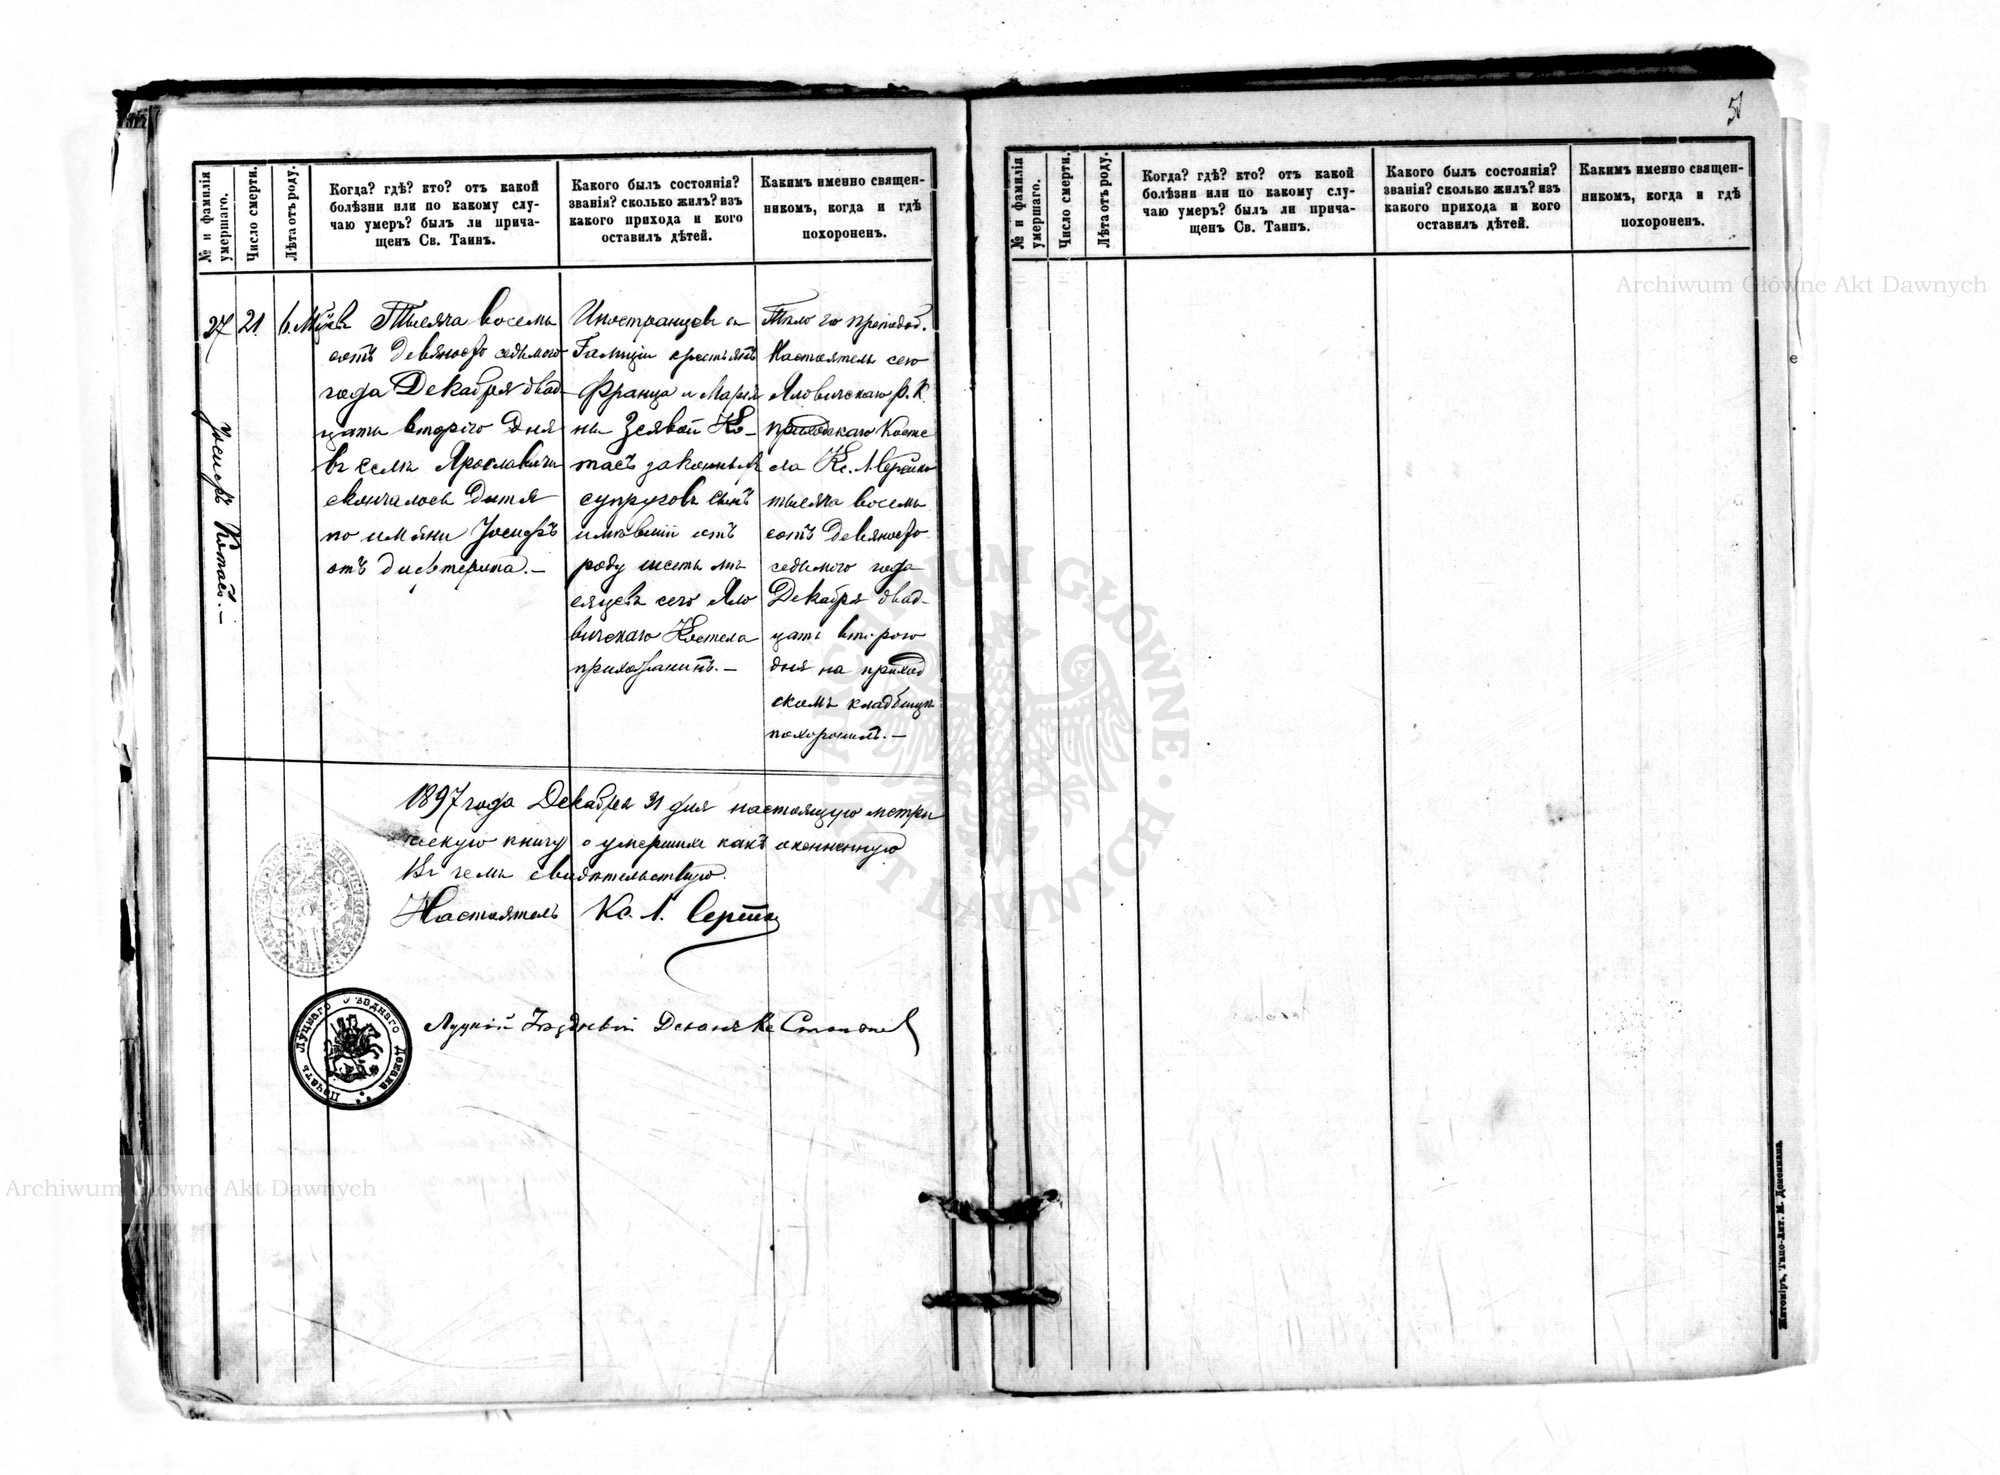 51
№ и фамилія умершаго.
Число смерти.
Лѣта отъ роду.
Когда? гдѣ? кто? отъ какой
болѣзни или по какому слу-
чаю умеръ? былъ ли прича-
щенъ Св. Таинъ.
Какого былъ состоянія?
званія? сколько жилъ? изъ
какого прихода и кого
оставилъ дѣтей.
Каким именно священ-
никомъ, когда и гдѣ
похороненъ.
27
Іосифъ Котасъ.–
21
6.
Тысяча восемь
сотъ девяносто седьмого
года Декабря двад-
цать второго дня
въ селѣ Ярославичи
скончалось дитя
по имяни Іосифъ
отъ дифтерита.–
Иностранцевъ изъ
Галиціи крестьянъ
Франца и Маріан-
ны Ко-
тасъ законныхъ
супруговъ сынъ
имѣвшій отъ
роду шесть мѣ
сяцевъ сего Яло
вичскаго Костела
прихожанинъ.–
Тѣло го преподоб.
Настоятель сего
Яловичскаго Р. К.
приходскаго Косте
ла Кс. Л.
тысяча восемь
сотъ девяносто
седьмого года
Декабря двад-
цать второго
дня на приход
скомъ кладбищѣ
похоронилъ.–
1897 года Декабря 31 дня настоящую метри
ческую книгу о умершихъ какъ оконченную
въ чемъ свидѣтельствую.
Настоятель Кс. Л.
Луцкій Уѣздный Деканъ Кс
Печать Луцкаго Уѣзднаго Декана
№ и фамилія умершаго.
Число смерти.
Лѣта отъ роду.
Когда? гдѣ? кто? отъ какой
болѣзни или по какому слу-
чаю умеръ? былъ ли прича-
щенъ Св. Таинъ.
Какого былъ состоянія?
званія? сколько жилъ? изъ
какого прихода и кого
оставилъ дѣтей.
Каким именно священ-
никомъ, когда и гдѣ
похороненъ.
Житоміръ, Типо-Лит. М. Дененмана
Archiwum Główne Akt Dawnych
Archiwum Główne Akt Dawnych
ARCHIWUM GŁÓWNE · AKT DAWNYCH ·